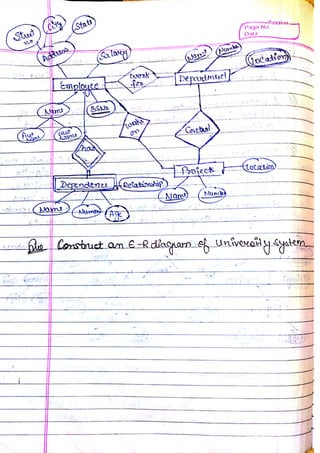 City
State
Street no
Address
Salary
Name
Number
Location
Page No
Date
Employee
work for
Department
Name
SSNo
works on
Control
has
Project
Location
Dependence
Relationship
Name
Number
Name
Age
Que Construct an E-R diagram of university system.